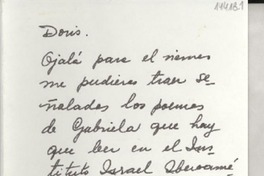 111181
Doris.
Ojalá para el viernes
me pudieras traer se-
ñalados los poemas
de Gabriela que hay
que leer en el Ins-
tituto Israel Iberoamé-